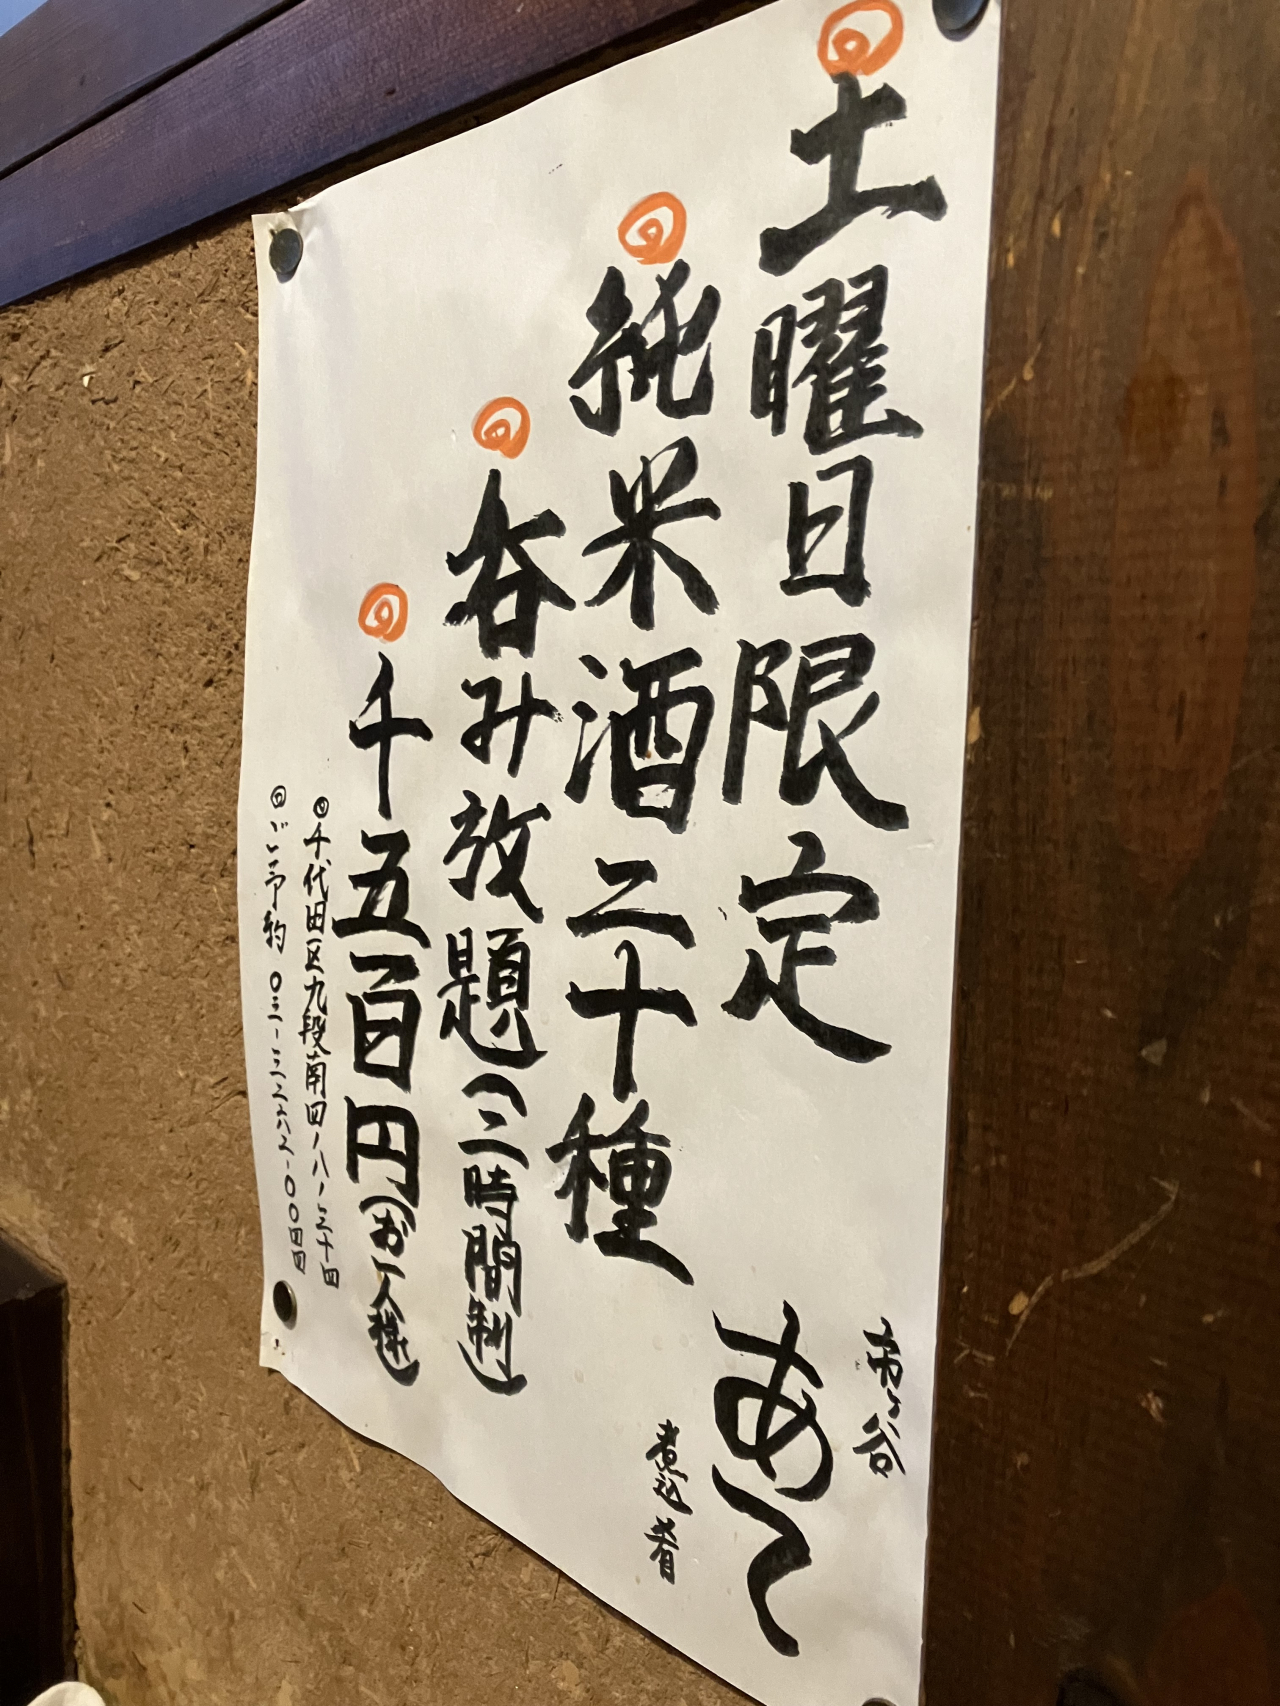 土曜日限定
純米酒二十種
呑み放題(二時間制)
千五百円(お一人様)
千代田区九段南四ノ八ノ三十四
ご予約 〇三-三二六二-〇〇四四
市ヶ谷
あて
煮込 肴